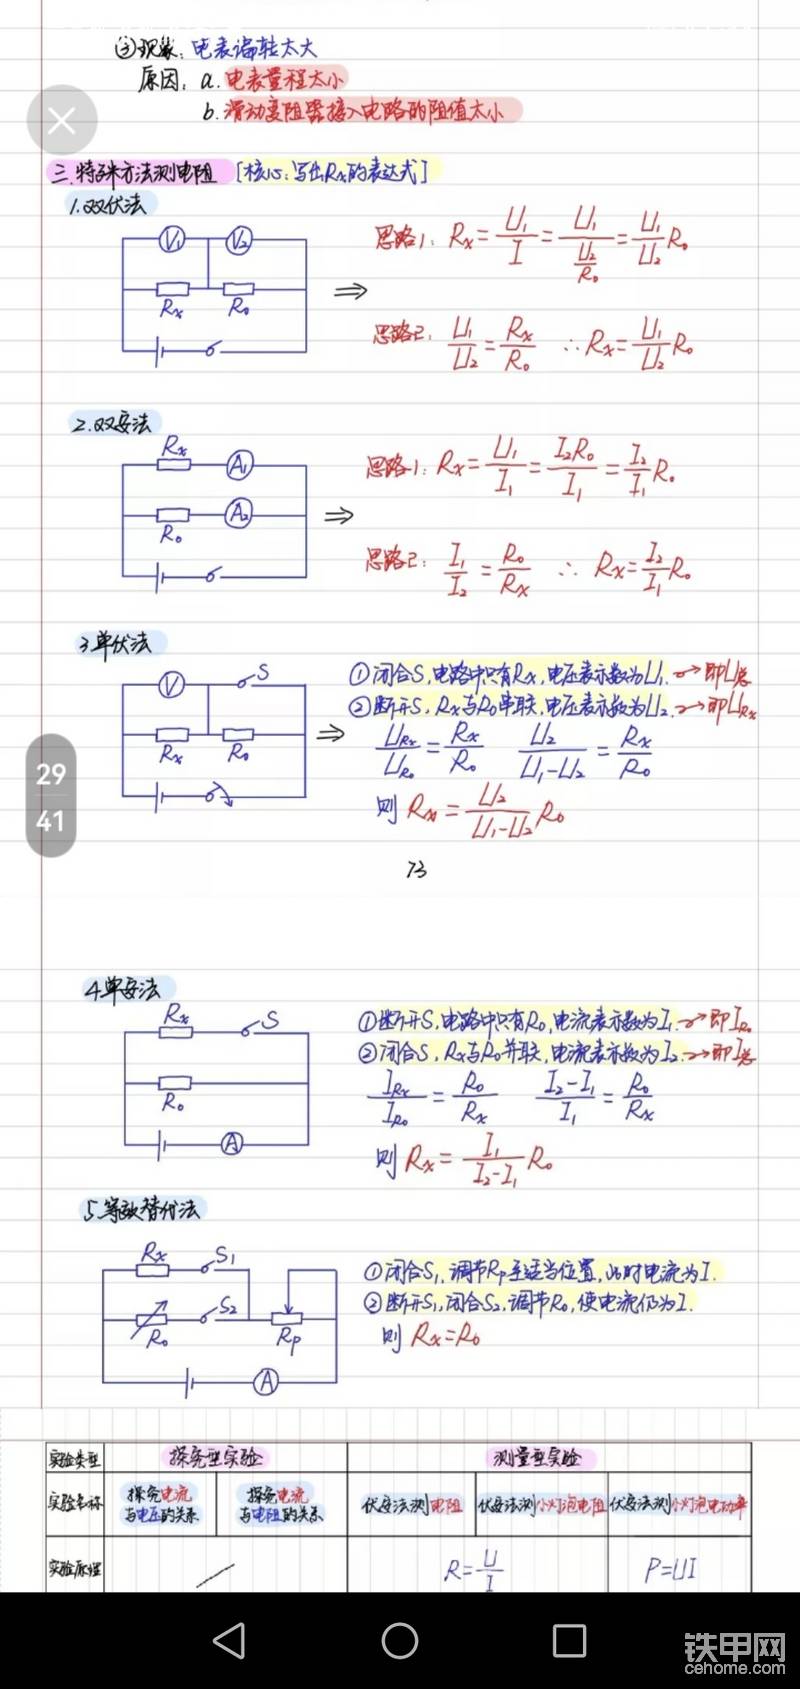 ③现象：电表偏转太大
原因：a.电表量程太小
b.滑动变阻器接入电路的阻值太小
三.特殊方法测电阻 [核心：写出Rx的表达式]
1.双伏法
V₁ V₂
Rx R₀
⇒
思路1：Rx=U₁/I=U₁/(U₂/R₀)=U₁/U₂R₀
思路2：U₁/U₂=Rx/R₀ ∴Rx=U₁/U₂R₀
2.双安法
Rx A₁
R₀ A₂
⇒
思路1：Rx=U₁/I₁=I₂R₀/I₁=I₂/I₁R₀
思路2：I₁/I₂=R₀/Rx ∴ Rx=I₂/I₁R₀
3.单伏法
V S
Rx R₀
⇒
①闭合S,电路中只有Rx,电压表示数为U₁.→即U总
②断开S,Rx与R₀串联,电压表示数为U₂.→即URx
URx/UR₀=Rx/R₀ U₂/(U₁-U₂)=Rx/R₀
则Rx=U₂/(U₁-U₂)R₀
29
41
73
4.单安法
Rx S
R₀
A
①断开S,电路中只有R₀,电流表示数为I₁.→即IR₀
②闭合S,Rx与R₀并联,电流表示数为I₂.→即I总
IRx/IR₀=R₀/Rx (I₂-I₁)/I₁=R₀/Rx
则Rx=I₁/(I₂-I₁)R₀
5.等效替代法
Rx S₁
R₀ S₂ Rp
A
①闭合S₁,调节Rp至适当位置,此时电流为I.
②断开S₁,闭合S₂,调节R₀,使电流仍为I.
则Rx=R₀
实验类型 探究型实验 测量型实验
实验名称 探究电流与电压的关系 探究电流与电阻的关系 伏安法测电阻 伏安法测小灯泡电阻 伏安法测小灯泡电功率
实验原理 ／ R=U/I P=UI
铁甲网
cehome.com